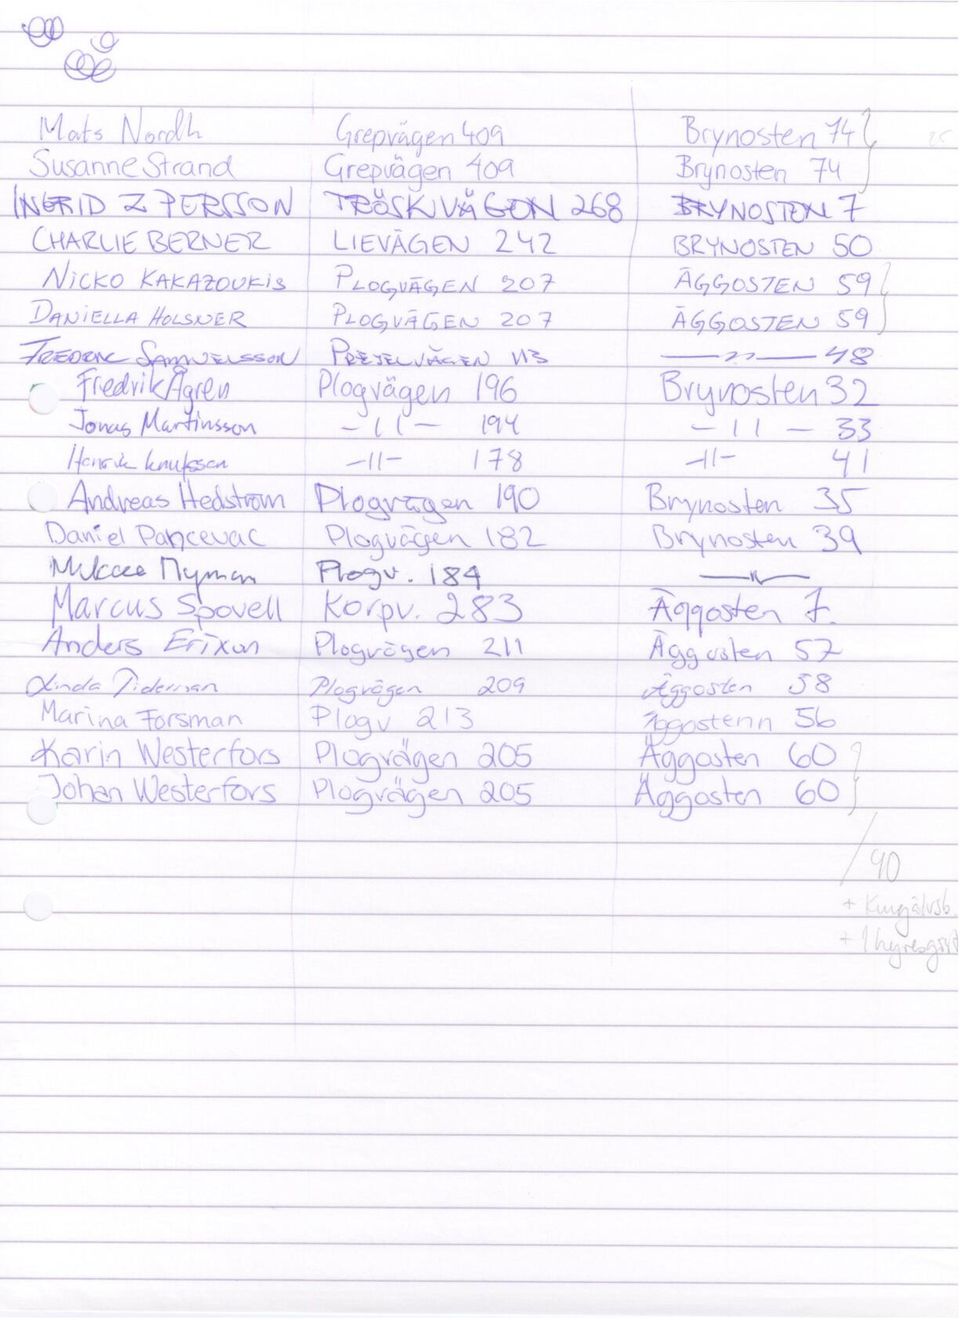 Mats Nordh Grepvägen 409 Brynosten 74
Susanne Strand Grepvägen 409 Brynosten 74
INGRID Z PERSSON TRÖSKVÄGEN 268 BRYNOSTEN 7
CHARLIE BERNER LIEVÄGEN 242 BRYNOSTEN 50
NICKO KAKAZOUKIS PLOGVÄGEN 207 ÄGGOSTEN 59
DANIELLA HOLSNER PLOGVÄGEN 207 ÄGGOSTEN 59
FREDRIK SAMUELSSON 113 —"— 48
Fredrik Ågren Plogvägen 196 Brynosten 32
Jonas Martinsson -11- 194 -11- 33
Henrik Knutsson -11- 178 -11- 41
Andreas Hedström Plogvägen 190 Brynosten 35
Daniel Pancevac Plogvägen 182 Brynosten 39
Nyman Plogv. 184 —"—
Marcus Spovell Korpv. 283 Äggosten 7.
Anders Erixon Plogvägen 211 Äggosten 57
Linda Tiderman Plogvägen 209 Äggosten 58
Marina Forsman Plogv 213 Äggostenn 56
Karin Westerfors Plogvägen 205 Äggosten 60
Johan Westerfors Plogvägen 205 Äggosten 60
/90
+ Kungälvsb.
+ 1 hyresgäst